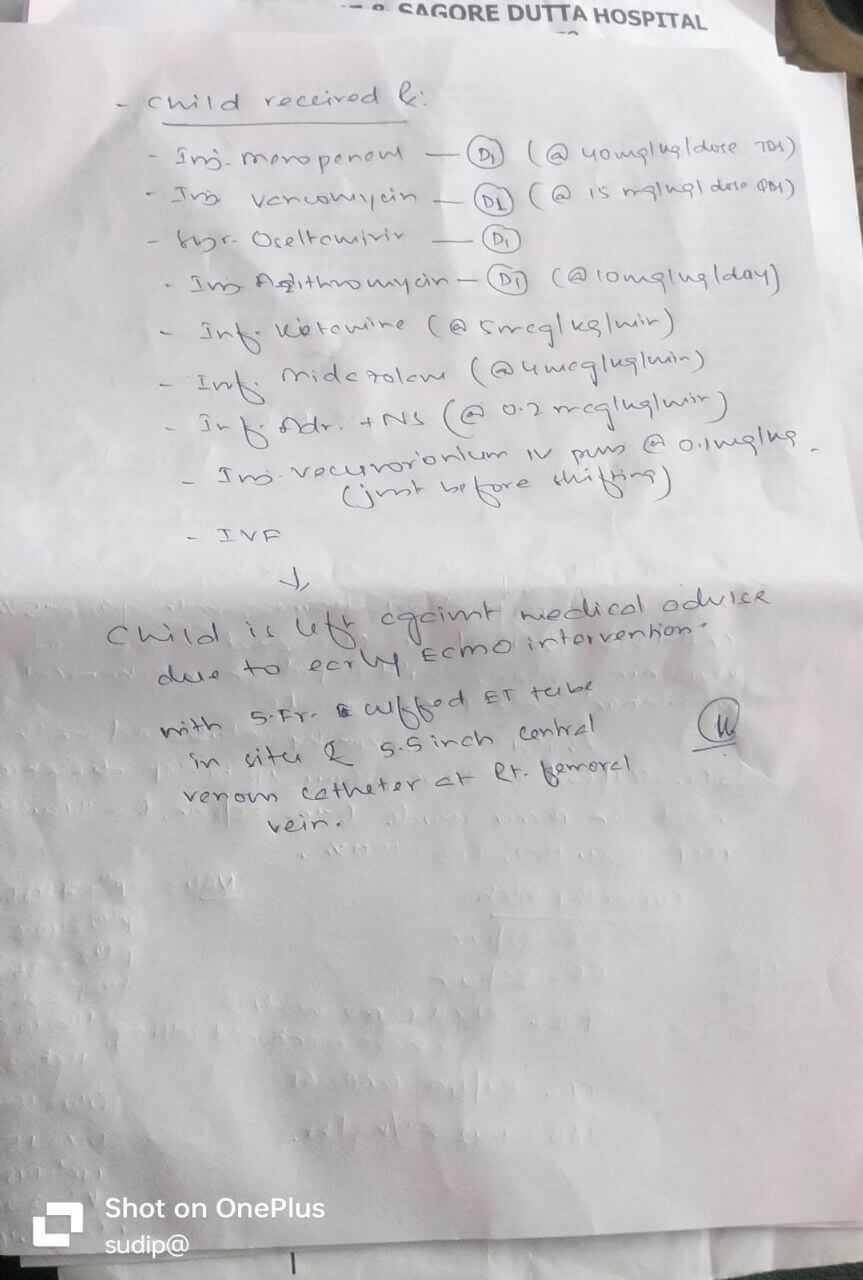 & SAGORE DUTTA HOSPITAL
- Child received &:
- Inj. meropenem — D1 (@ 40mg/kg/dose TDS)
- Inj. Vancomycin — D1 (@ 15 mg/kg/dose QDS)
- Syr. Oseltamivir — D1
- Inj Azithromycin — D1 (@10mg/kg/day)
- Inf. Ketamine (@ 5mcg/kg/min)
- Inf. Midazolam (@ 4mcg/kg/min)
- Inf. Adr. + NS (@ 0.2 mcg/kg/min)
- Inj. vecuroronium IV push @ 0.1mg/kg.
(just before shifting)
- IVF
↓
Child is left against medical advise
due to early ECMO intervention.
with 5.Fr. cuffed ET tube
in situ & 5.5 inch central
venous catheter at Rt. femoral
vein.
Shot on OnePlus
sudip@